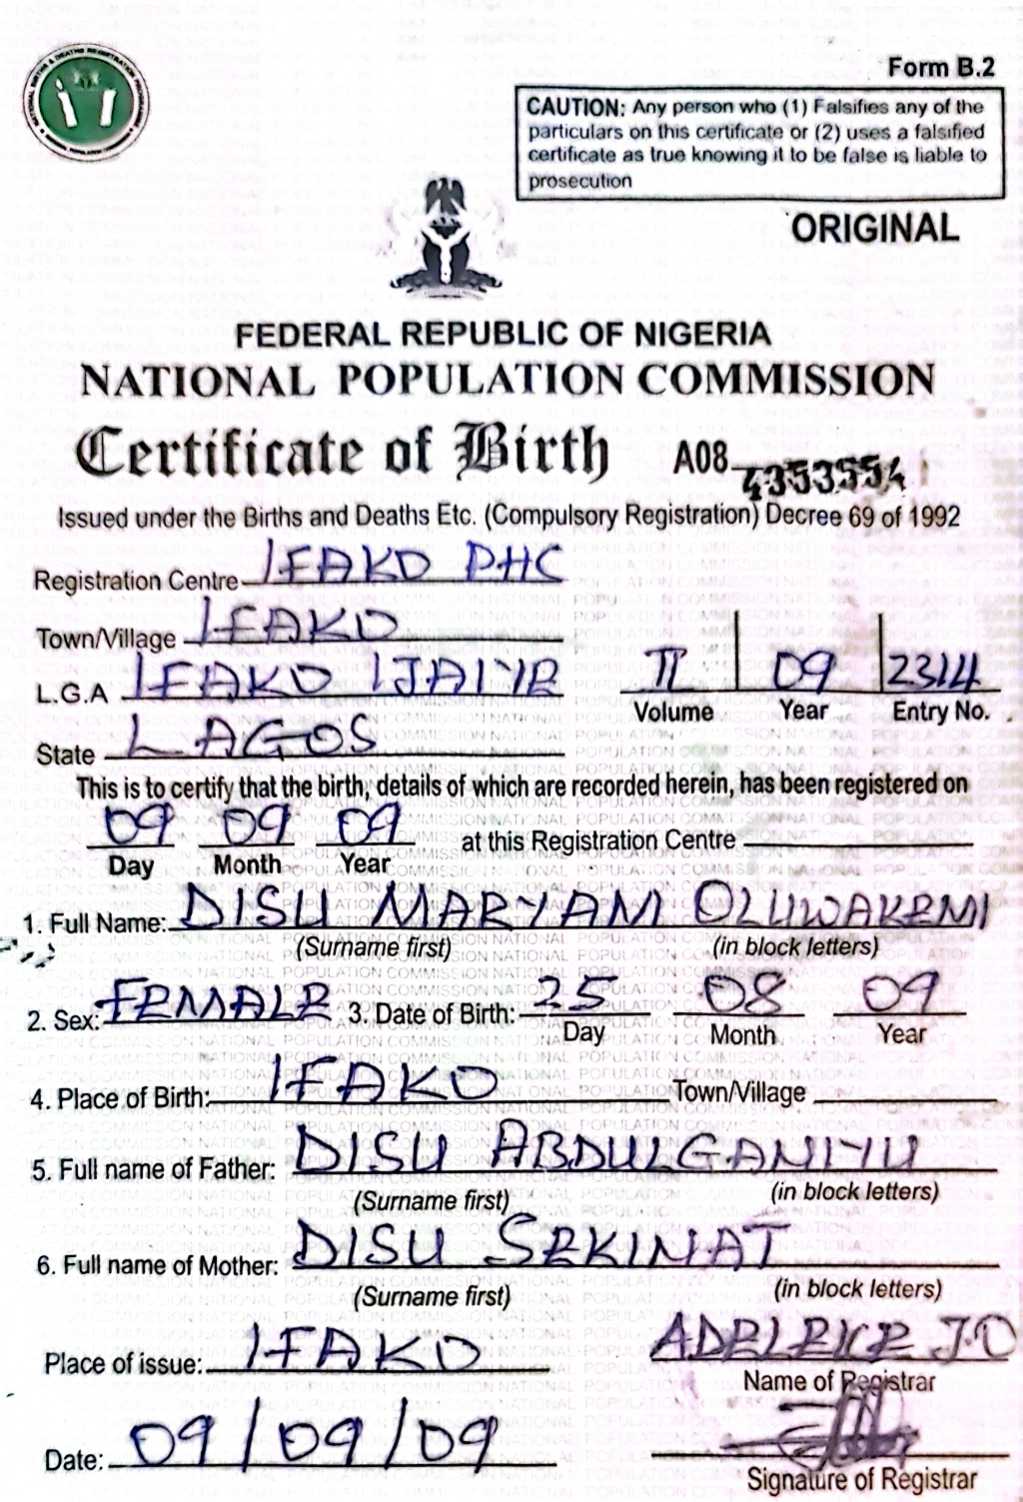 Form B.2
CAUTION: Any person who (1) Falsifies any of the
particulars on this certificate or (2) uses a falsified
certificate as true knowing it to be false is liable to
prosecution
ORIGINAL
FEDERAL REPUBLIC OF NIGERIA
NATIONAL POPULATION COMMISSION
Certificate of Birth A08 4353554
Issued under the Births and Deaths Etc. (Compulsory Registration) Decree 69 of 1992
Registration Centre IFAKO PHC
Town/Village IFAKO
L.G.A IFAKO IJAIYE II 09 2314
Volume Year Entry No.
State LAGOS
This is to certify that the birth, details of which are recorded herein, has been registered on
09 09 09 at this Registration Centre
Day Month Year
1. Full Name: DISU MARYAM OLUWAKEMI
(Surname first) (in block letters)
2. Sex: FEMALE 3. Date of Birth: 25 08 09
Day Month Year
4. Place of Birth: IFAKO Town/Village
5. Full name of Father: DISU ABDULGANIYU
(Surname first) (in block letters)
6. Full name of Mother: DISU SEKINAT
(Surname first) (in block letters)
Place of issue: IFAKO ADELEKE J.O
Name of Registrar
Date: 09/09/09
Signature of Registrar